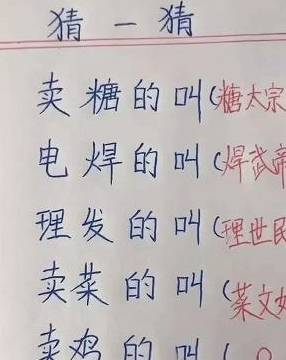 猜一猜
卖糖的叫(糖太宗
电焊的叫(焊武帝
理发的叫(理世民
卖菜的叫(菜文
卖鸡的叫(